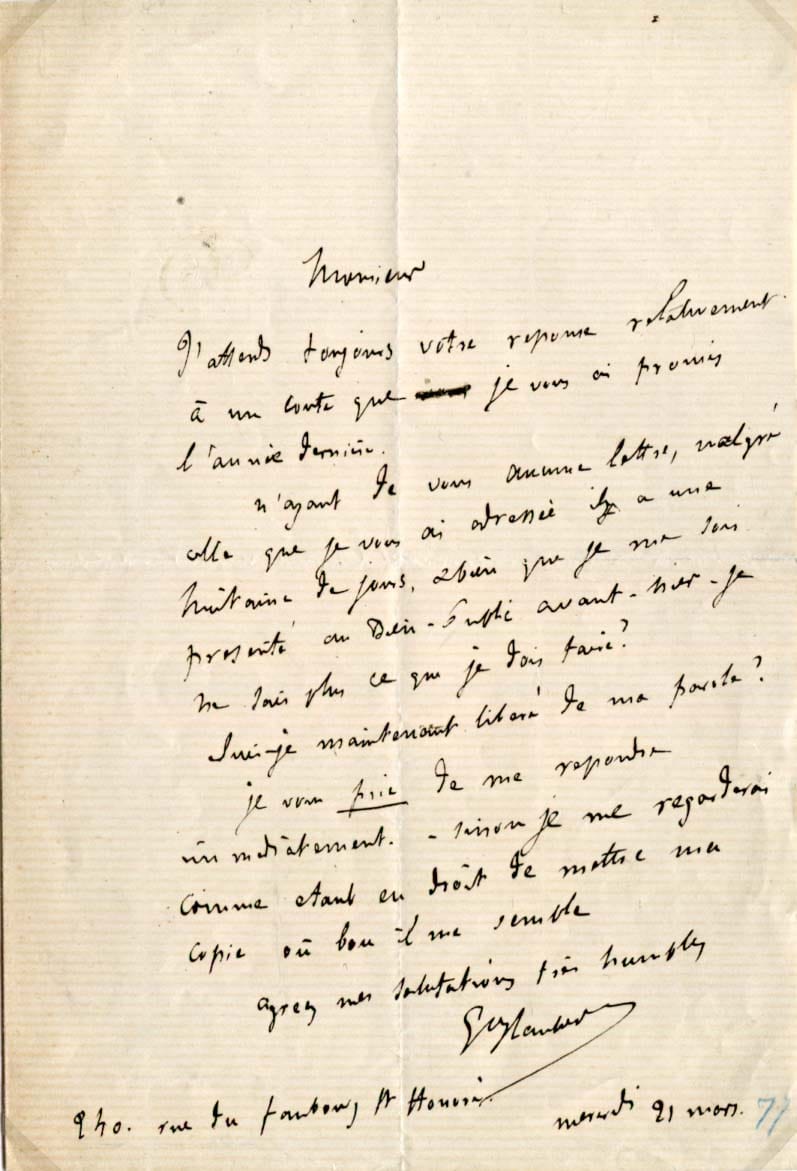 Monsieur
J'attends toujours votre reponse relativement
à un conte que je vous ai promis
l'année dernière.
n'ayant de vous aucune lettre, malgré
celle que je vous ai adressée il y a une
huitaine de jours, & bien que je me sois
presenté au Bien-Public avant-hier - je
ne sais plus ce que je dois faire?
Suis-je maintenant libéré de ma parole?
je vous prie de me repondre
immédiatement. - sinon je me regarderai
comme etant en droit de mettre ma
copie où bon il me semble
agreez mes salutations très humbles
GFlaubert
240. rue du faubourg St Honoré.
mercredi 21 mars. 77